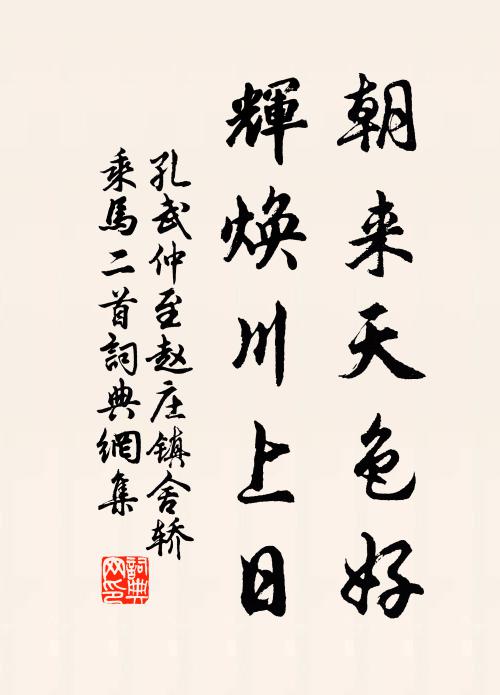 朝来天色好
輝煥川上日
孔武仲至赵庄镇舍轿
乘馬二首詞典網集
詞典网印